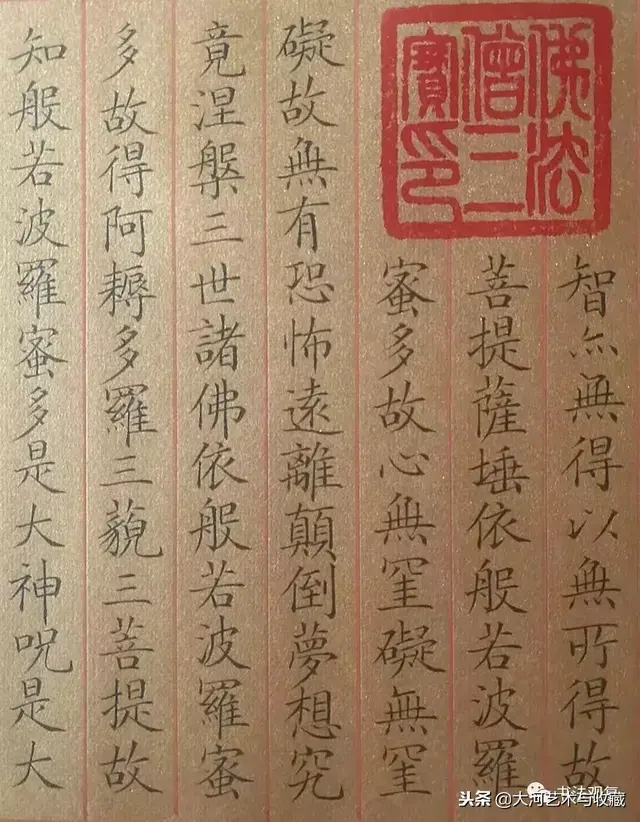 佛法
僧三
寶印
智亦無得以無所得故
菩提薩埵依般若波羅
蜜多故心無罣礙無罣
礙故無有恐怖遠離顛倒夢想究
竟涅槃三世諸佛依般若波羅蜜
多故得阿耨多羅三藐三菩提故
知般若波羅蜜多是大神呪是大
书法观复
头条 @大河艺术与收藏